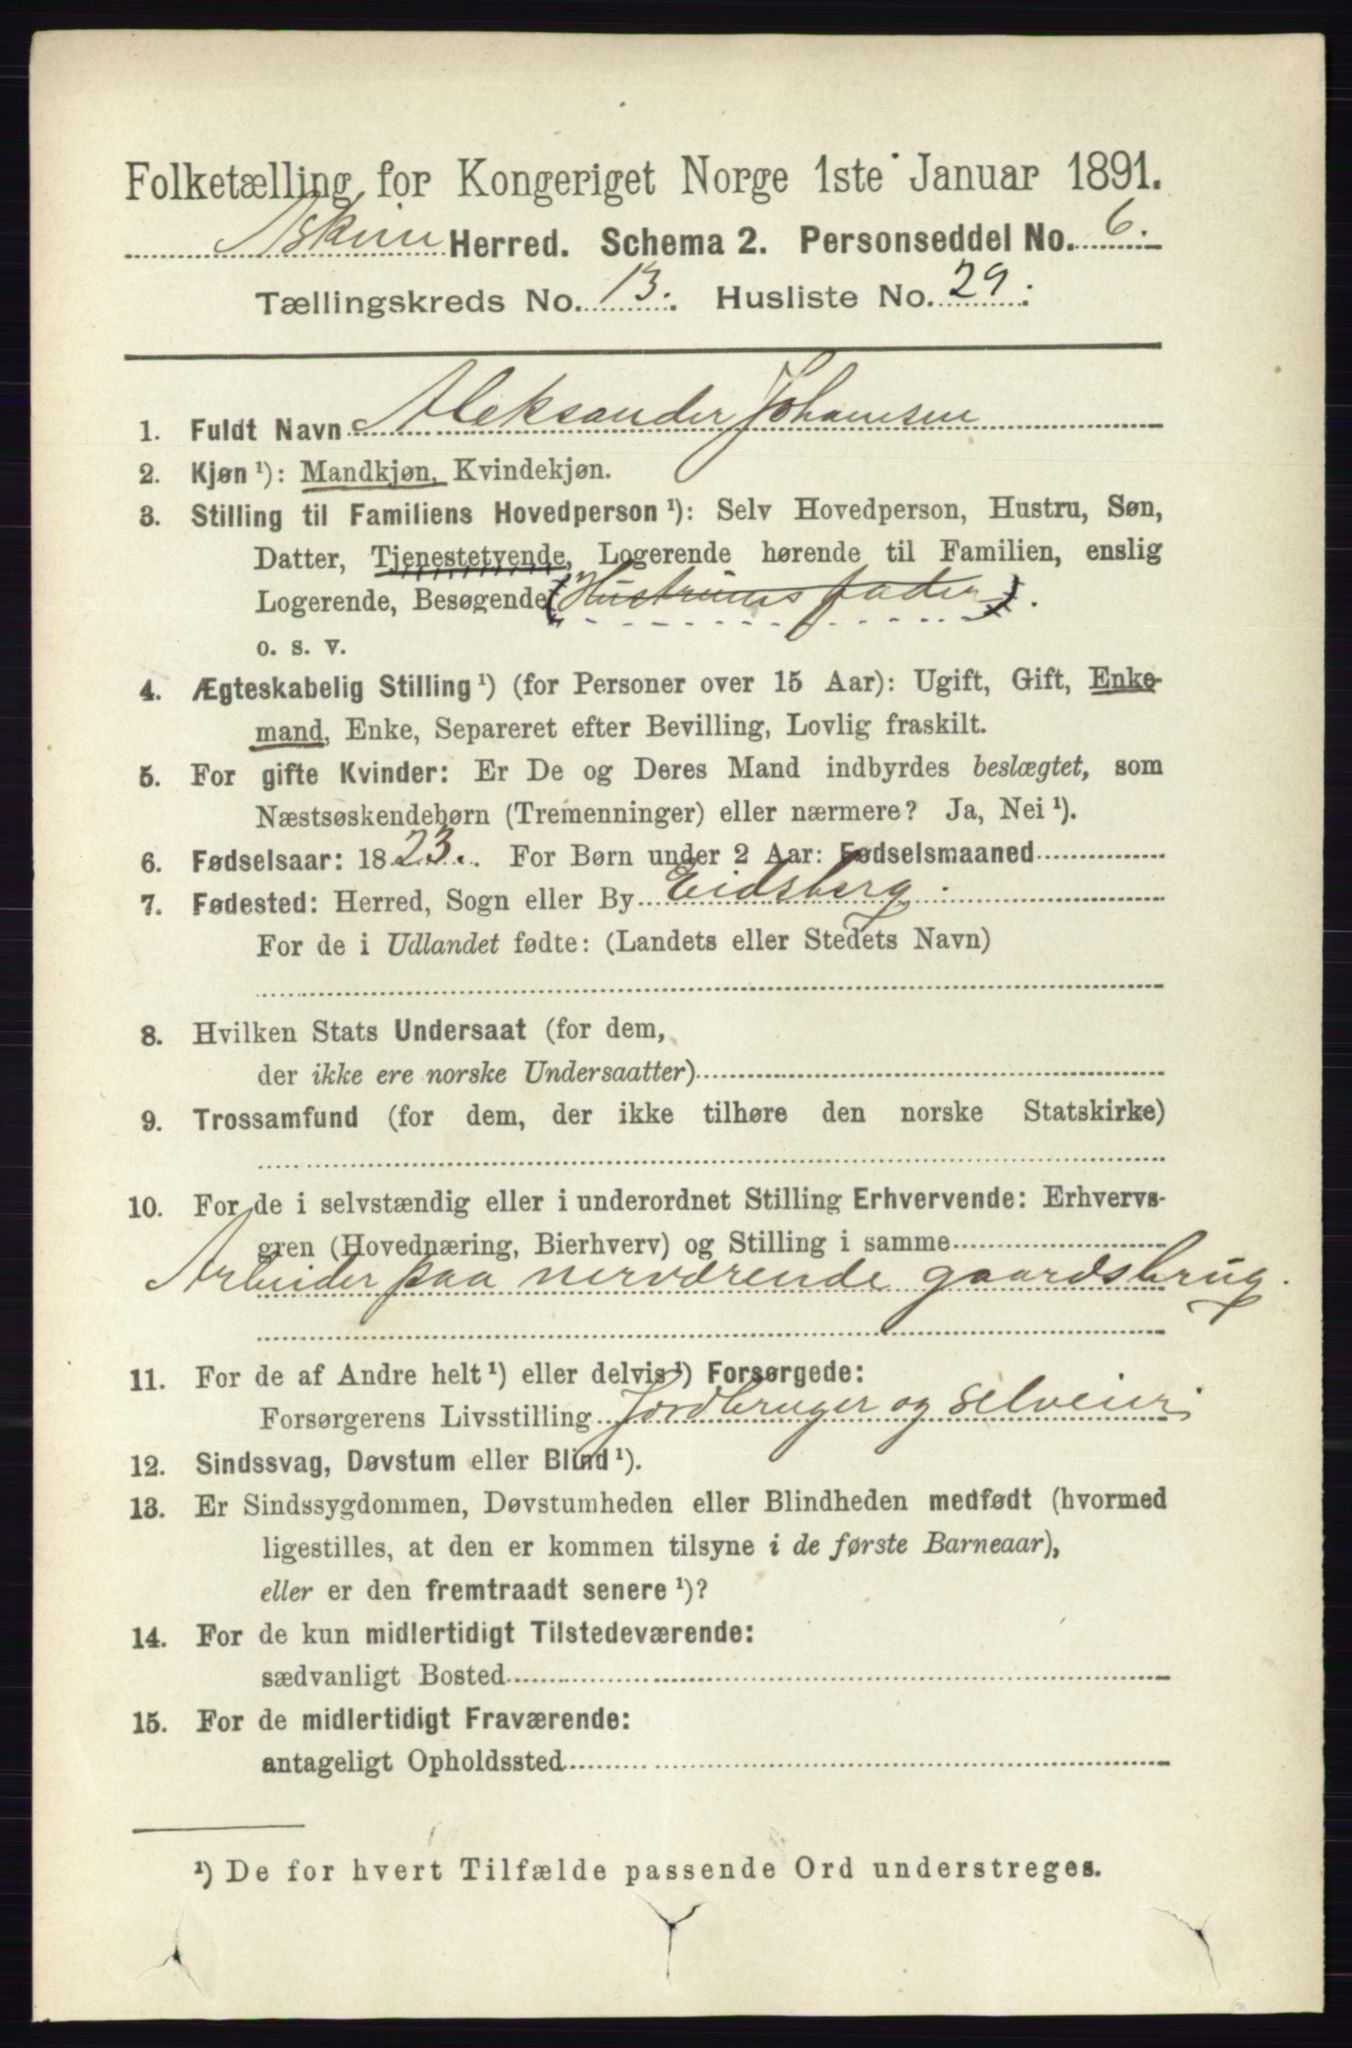 Folketælling for Kongeriget Norge 1ste Januar 1891.
Askim Herred. Schema 2. Personseddel No. 6.
Tællingskreds No. 13. Husliste No. 29.
1. Fuldt Navn Aleksander Johannsen
2. Kjøn ¹): Mandkjøn, Kvindekjøn.
3. Stilling til Familiens Hovedperson ¹): Selv Hovedperson, Hustru, Søn,
Datter, Tjenestetyende, Logerende hørende til Familien, enslig
Logerende, Besøgende (Hustruens fader).
o. s. v.
4. Ægteskabelig Stilling ¹) (for Personer over 15 Aar): Ugift, Gift, Enke-
mand, Enke, Separeret efter Bevilling, Lovlig fraskilt.
5. For gifte Kvinder: Er De og Deres Mand indbyrdes beslægtet, som
Næstsøskendebørn (Tremenninger) eller nærmere? Ja, Nei ¹).
6. Fødselsaar: 1823. For Børn under 2 Aar: Fødselsmaaned
7. Fødested: Herred, Sogn eller By Eidsberg.
For de i Udlandet fødte: (Landets eller Stedets Navn)
8. Hvilken Stats Undersaat (for dem,
der ikke ere norske Undersaatter)
9. Trossamfund (for dem, der ikke tilhøre den norske Statskirke)
10. For de i selvstændig eller i underordnet Stilling Erhvervende: Erhvervs-
gren (Hovednæring, Bierhverv) og Stilling i samme
Arbeider paa nerværende gaardsbrug.
11. For de af Andre helt ¹) eller delvis ¹) Forsørgede:
Forsørgerens Livsstilling Jordbruger og selveier
12. Sindssvag, Døvstum eller Blind ¹).
13. Er Sindssygdommen, Døvstumheden eller Blindheden medfødt (hvormed
ligestilles, at den er kommen tilsyne i de første Barneaar),
eller er den fremtraadt senere ¹)?
14. For de kun midlertidigt Tilstedeværende:
sædvanligt Bosted
15. For de midlertidigt Fraværende:
antageligt Opholdssted
¹) De for hvert Tilfælde passende Ord understreges.